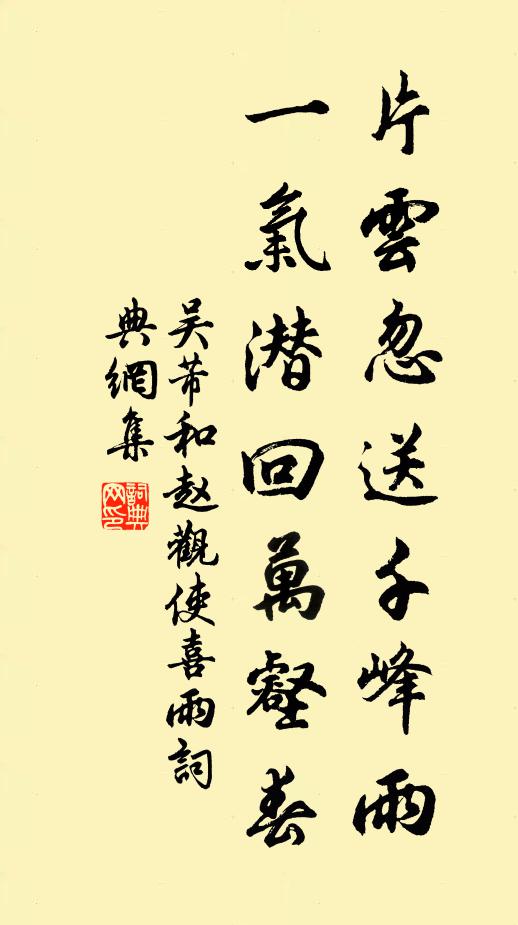 片雲忽送千峰雨
一氣潜回萬壑春
吴芾和赵觀使喜雨詞
典網集
詞典網印